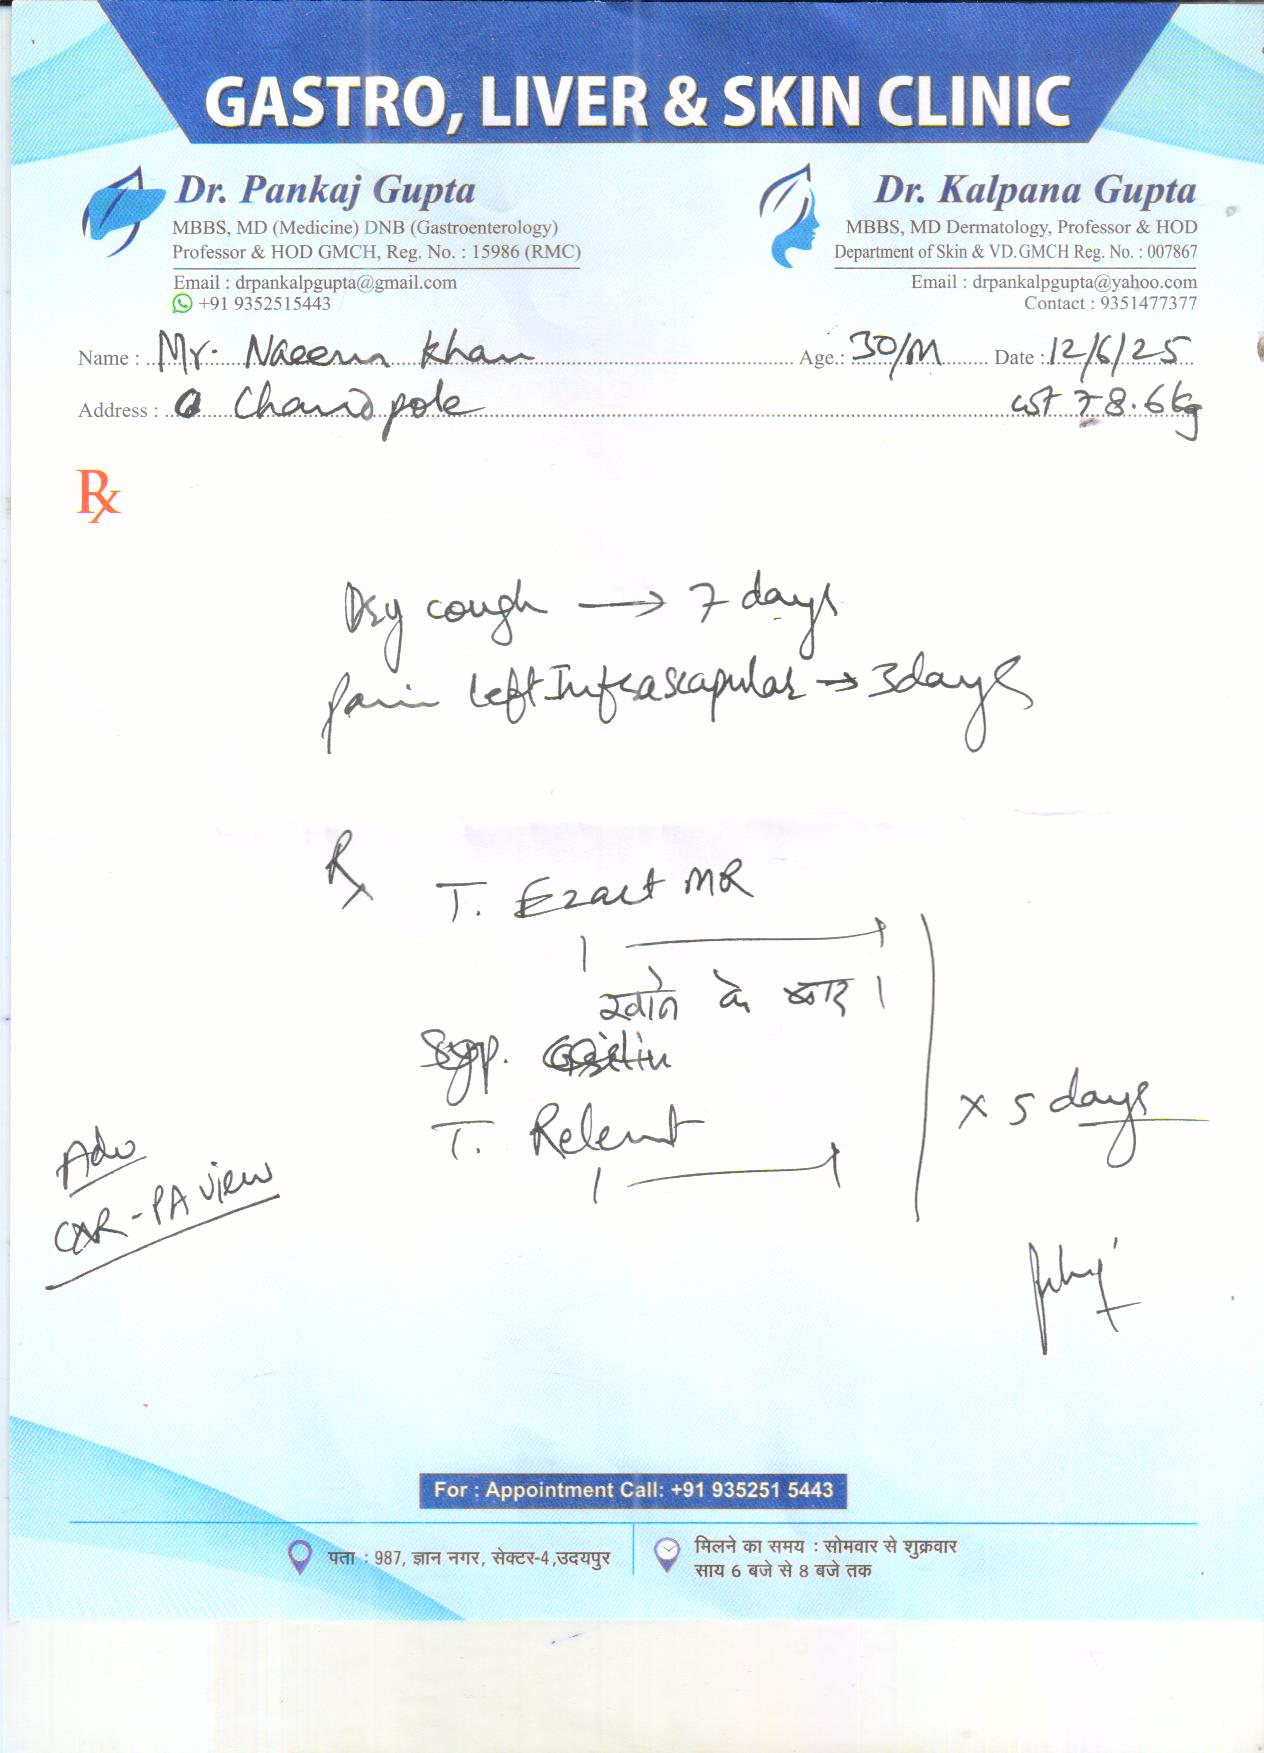 GASTRO, LIVER & SKIN CLINIC
Dr. Pankaj Gupta
MBBS, MD (Medicine) DNB (Gastroenterology)
Professor & HOD GMCH, Reg. No. : 15986 (RMC)
Email : drpankalpgupta@gmail.com
+91 9352515443
Dr. Kalpana Gupta
MBBS, MD Dermatology, Professor & HOD
Department of Skin & VD. GMCH Reg. No. : 007867
Email : drpankalpgupta@yahoo.com
Contact : 9351477377
Name : Mr. Naeem Khan Age.: 30/M Date : 12/6/25
Address : Chandpole wt 78.6kg
Rx
Dry cough → 7 days
pain left Infrascapular → 3 days
Rx
T. Ezact MR
1 — 1
खाने के बाद ।
Syp.
T. Relent
1 — 1
x 5 days
Adv
CXR - PA view
For : Appointment Call: +91 935251 5443
पता : 987, ज्ञान नगर, सेक्टर-4 ,उदयपुर
मिलने का समय : सोमवार से शुक्रवार
साय 6 बजे से 8 बजे तक